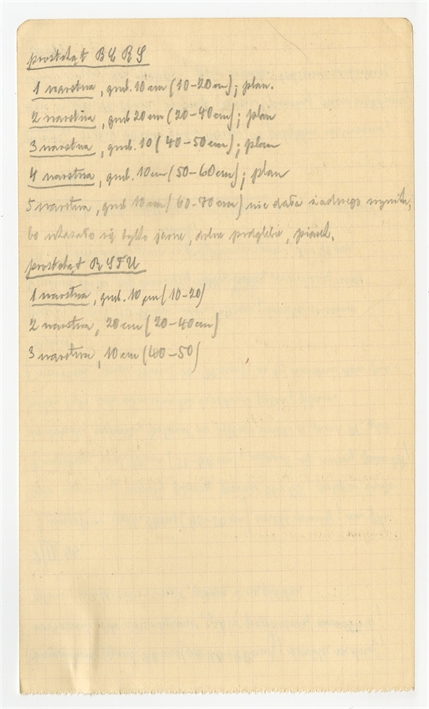 prostokąt BCRS
1 warstwa, grub. 10 cm (10-20 cm); plan.
2 warstwa, grub 20 cm (20-40 cm); plan
3 warstwa, grub. 10 (40-50 cm); plan
4 warstwa, grub. 10 cm (50-60 cm); plan
5 warstwa, grub 10 cm (60-70 cm) nie dała żadnego wyniku,
bo ukazało się tylko jasne, dolne podglebie, piasek.
prostokąt RSTU
1 warstwa, grub. 10 cm (10-20)
2 warstwa, 20 cm (20-40 cm)
3 warstwa, 10 cm (40-50)